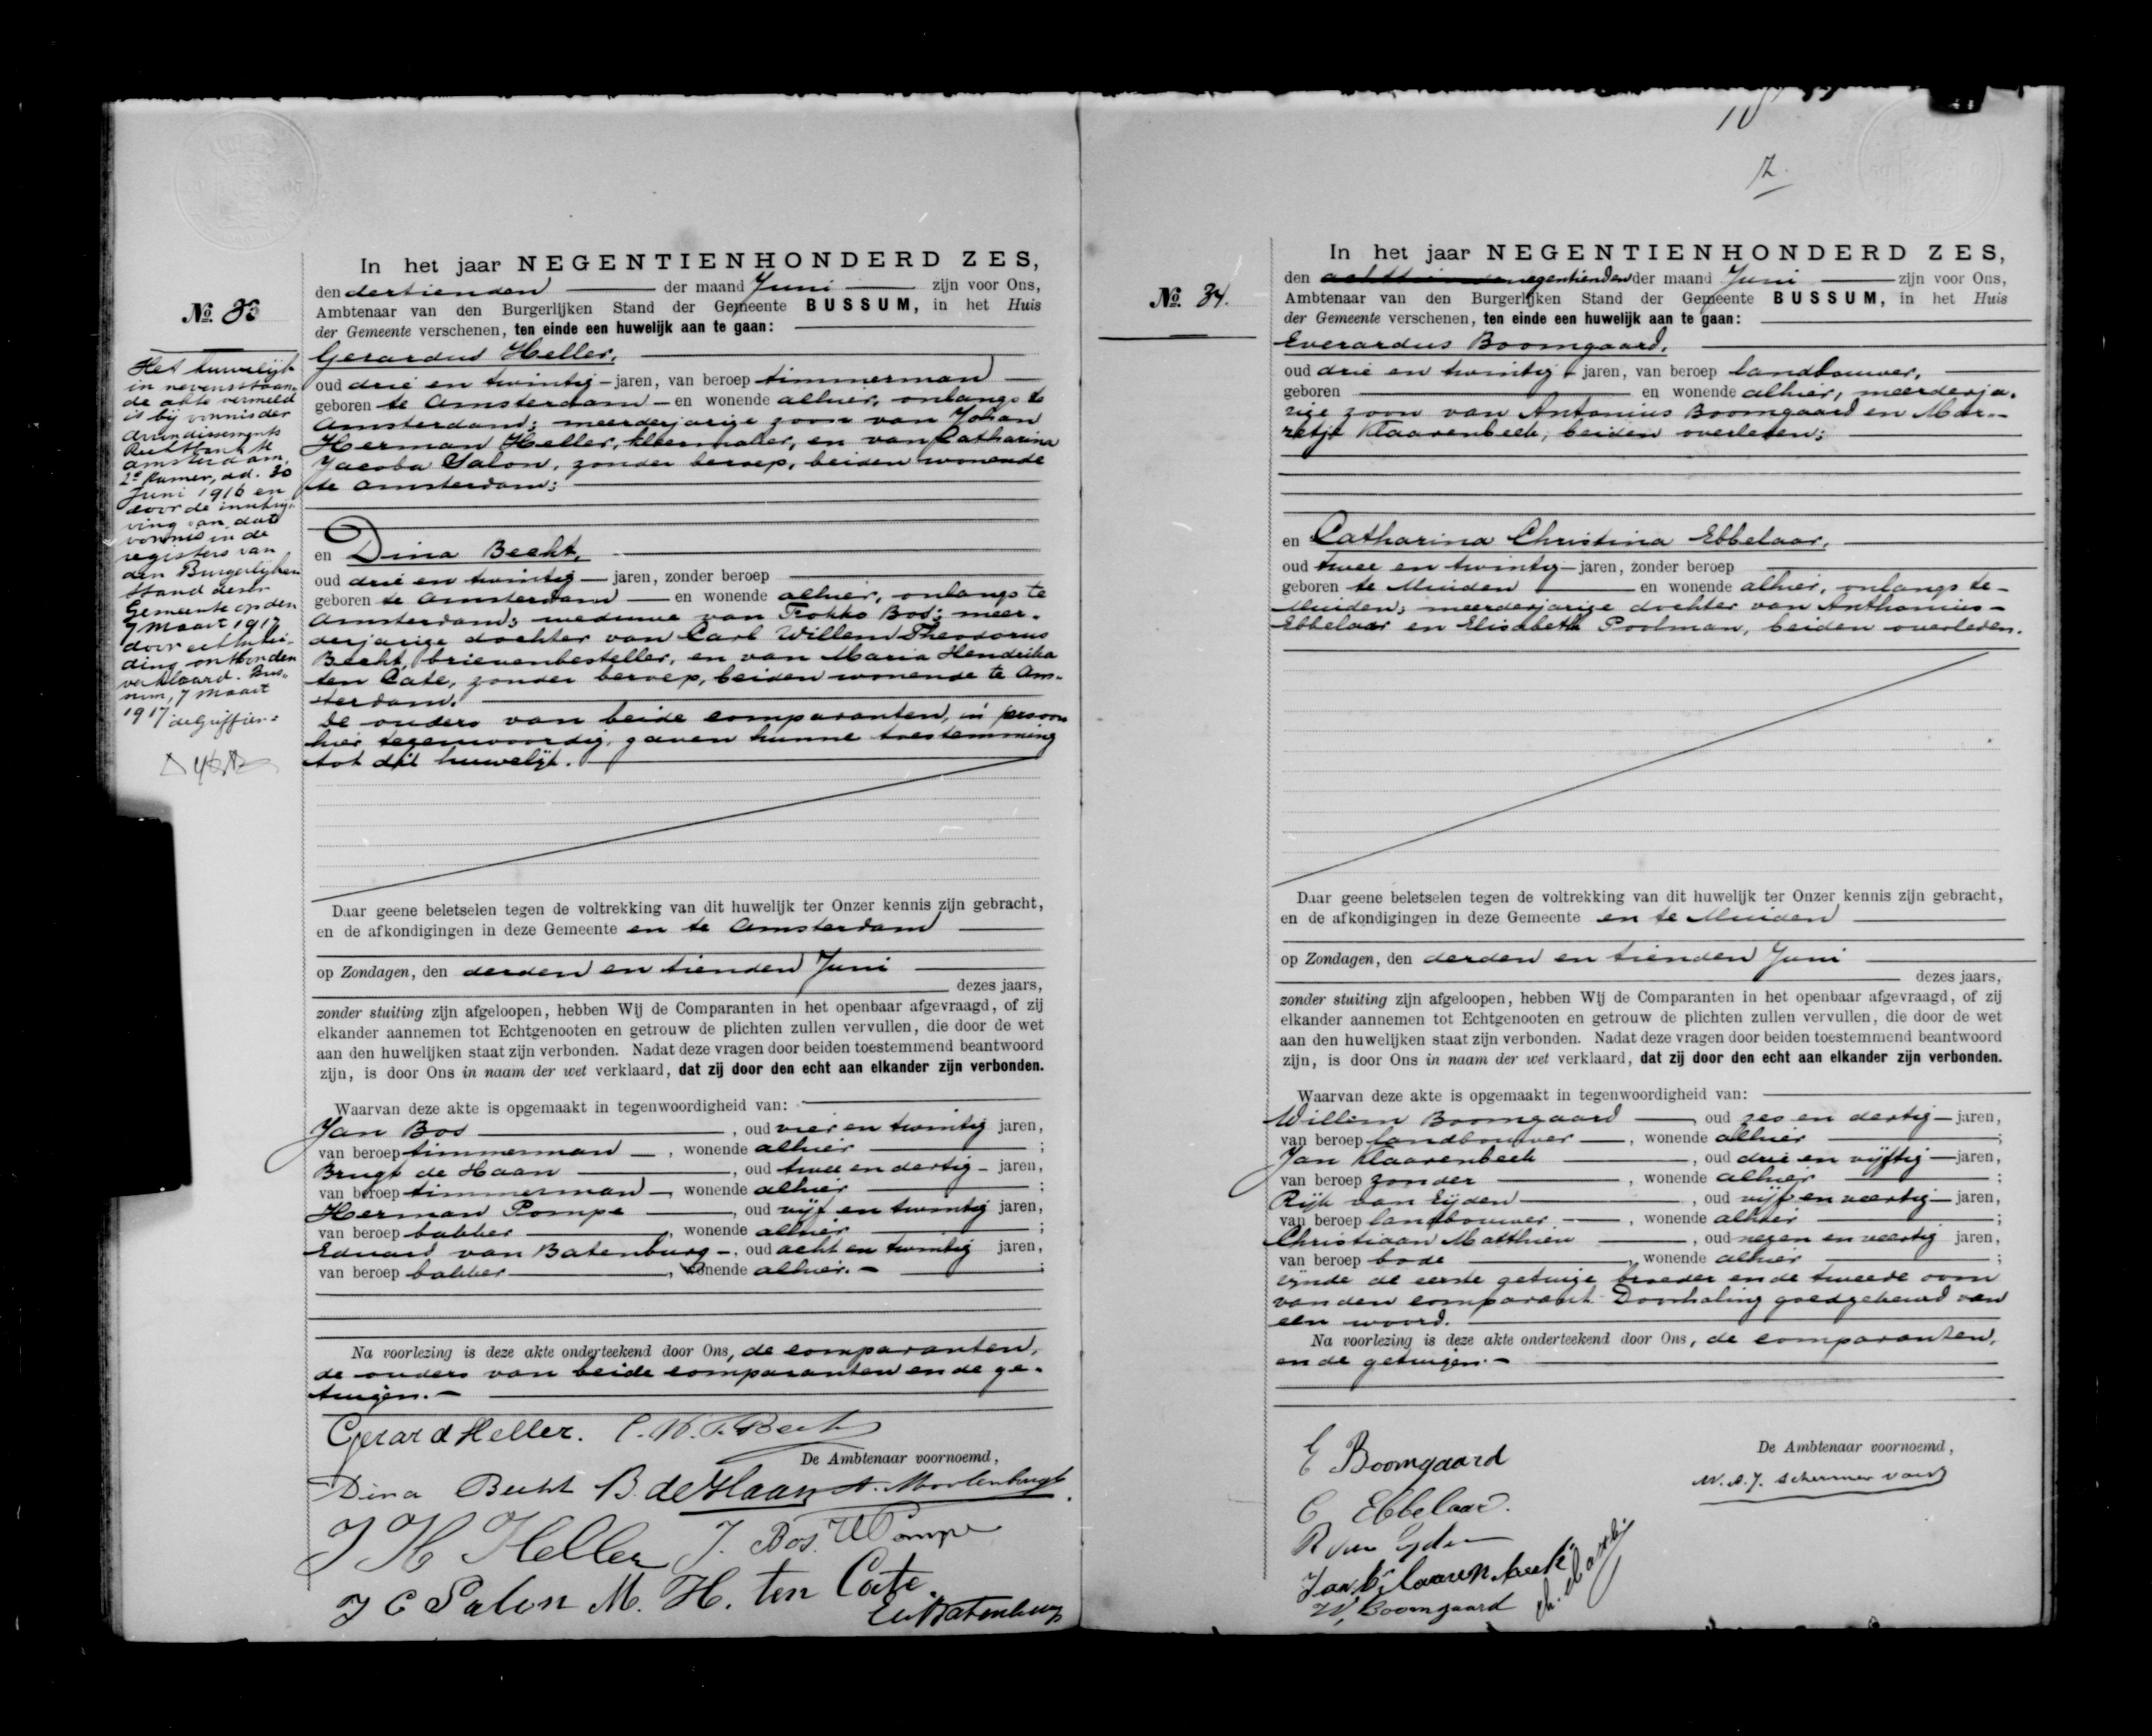 No. 33
Het huwelijk
in nevensstaan-
de akte vermeld
is bij vonnis der
Arrondissements
Rechtbank te
Amsterdam,
2e Kamer, dd. 30
Juni 1916 en
door de inschrij-
ving van dat
vonnis in de
registers van
den Burgerlijken
Stand dezer
Gemeente op den
7 Maart 1917
door echtschei-
ding ontbonden
verklaard. Bus-
sum, 7 Maart
1917 de Griffier:
In het jaar NEGENTIENHONDERD ZES,
den dertienden der maand Juni zijn voor Ons,
Ambtenaar van den Burgerlijken Stand der Gemeente BUSSUM, in het Huis
der Gemeente verschenen, ten einde een huwelijk aan te gaan:
Gerardus Heller,
oud drie en twintig jaren, van beroep timmerman
geboren te Amsterdam en wonende alhier, onlangs te
Amsterdam; meerderjarige zoon van Johan
Herman Heller, kleermaker, en van Catharina
Jacoba Salon, zonder beroep, beiden wonende
te Amsterdam;
en Dina Becht,
oud drie en twintig jaren, zonder beroep
geboren te Amsterdam en wonende alhier, onlangs te
Amsterdam; weduwe van Fokko Bos; meer-
derjarige dochter van Carl Willem Theodorus
Becht, brievenbesteller, en van Maria Hendrika
ten Cate, zonder beroep, beiden wonende te Am-
sterdam.
De ouders van beide comparanten, in persoon
hier tegenwoordig, gaven hunne toestemming
tot dit huwelijk.
Daar geene beletselen tegen de voltrekking van dit huwelijk ter Onzer kennis zijn gebracht,
en de afkondigingen in deze Gemeente en te Amsterdam
op Zondagen, den derden en tienden Juni
dezes jaars,
zonder stuiting zijn afgeloopen, hebben Wij de Comparanten in het openbaar afgevraagd, of zij
elkander aannemen tot Echtgenooten en getrouw de plichten zullen vervullen, die door de wet
aan den huwelijken staat zijn verbonden. Nadat deze vragen door beiden toestemmend beantwoord
zijn, is door Ons in naam der wet verklaard, dat zij door den echt aan elkander zijn verbonden.
Waarvan deze akte is opgemaakt in tegenwoordigheid van:
Jan Bos, oud vier en twintig jaren,
van beroep timmerman, wonende alhier;
Brugt de Haan, oud twee en dertig jaren,
van beroep timmerman, wonende alhier;
Herman Pompe, oud vijf en twintig jaren,
van beroep bakker, wonende alhier;
Eduard van Batenburg, oud acht en twintig jaren,
van beroep bakker, wonende alhier.
Na voorlezing is deze akte onderteekend door Ons, de comparanten,
de ouders van beide comparanten en de ge-
tuigen.
Gerard Heller. C. W. T. Becht
De Ambtenaar voornoemd,
Dina Becht B. de Haan
J H Heller J. Bos. H Pompe
J C Salon M. H. ten Cate.
No. 34.
In het jaar NEGENTIENHONDERD ZES,
den negentienden der maand Juni zijn voor Ons,
Ambtenaar van den Burgerlijken Stand der Gemeente BUSSUM, in het Huis
der Gemeente verschenen, ten einde een huwelijk aan te gaan:
Everardus Boomgaard,
oud drie en twintig jaren, van beroep landbouwer,
geboren en wonende alhier, meerderja-
rige zoon van Antonius Boomgaard en Mar-
retje Klaarenbeek, beiden overleden;
en Catharina Christina Ebbelaar,
oud twee en twintig jaren, zonder beroep
geboren te Muiden en wonende alhier, onlangs te
Muiden; meerderjarige dochter van Anthonius
Ebbelaar en Elisabeth Poolman, beiden overleden.
Daar geene beletselen tegen de voltrekking van dit huwelijk ter Onzer kennis zijn gebracht,
en de afkondigingen in deze Gemeente en te Muiden
op Zondagen, den derden en tienden Juni
dezes jaars,
zonder stuiting zijn afgeloopen, hebben Wij de Comparanten in het openbaar afgevraagd, of zij
elkander aannemen tot Echtgenooten en getrouw de plichten zullen vervullen, die door de wet
aan den huwelijken staat zijn verbonden. Nadat deze vragen door beiden toestemmend beantwoord
zijn, is door Ons in naam der wet verklaard, dat zij door den echt aan elkander zijn verbonden.
Waarvan deze akte is opgemaakt in tegenwoordigheid van:
Willem Boomgaard, oud zes en dertig jaren,
van beroep landbouwer, wonende alhier;
Jan Klaarenbeek, oud drie en vijftig jaren,
van beroep zonder, wonende alhier;
Rijk van Eijden, oud vijf en veertig jaren,
van beroep landbouwer, wonende alhier;
Christiaan Matthieu, oud negen en veertig jaren,
van beroep bode, wonende alhier;
zijnde de eerste getuige broeder en de tweede oom
van den comparant. Doorhaling goedgekeurd van
één woord.
Na voorlezing is deze akte onderteekend door Ons, de comparanten,
en de getuigen.
E Boomgaard
De Ambtenaar voornoemd,
C Ebbelaar.
R van Eijden
Jan Klaarenbeek
W. Boomgaard